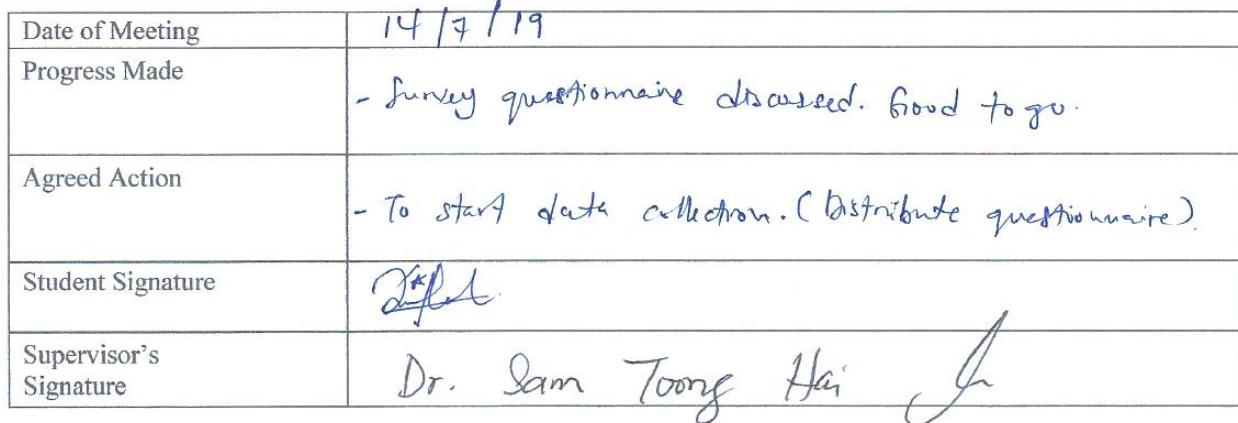 Date of Meeting 14/7/19
Progress Made
- Survey questionnaire discussed. Good to go.
Agreed Action
- To start data collection. (Distribute questionnaire)
Student Signature
Supervisor's
Signature
Dr. Sam Toong Hai